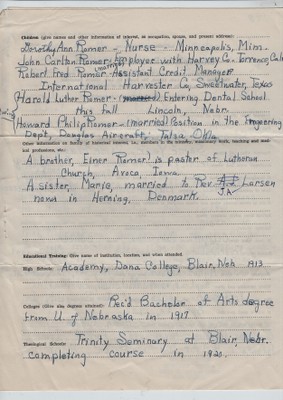 Children (give names and other information of interest, as occupation, spouse, and present address):
Dorothy Ann Romer - Nurse - Minneapolis, Minn.
John Carlton Romer - Employee with Harvey Co. - Torrence, Cal
Robert Fred Romer - Assistant Credit Manager
International Harvester Co., Sweetwater, Texas
Harold Luther Romer - Entering Dental School
this fall Lincoln - Nebr.
Howard Philip Romer - (married) Position in the Engineering
Dept, Douglas Aircraft, Tulsa, Okla.
Other information on family of historical interest, i.e., members in the ministry, missionary work, teaching and medical professions, etc.:
A brother, Elner Romer is pastor of Lutheran
Church, Avoca, Iowa.
A sister, Marie, married to Rev. Larsen
J.A.
now in Herning, Denmark.
Educational Training: Give name of institution, location, and when attended
High School: Academy, Dana College, Blair, Neb 1913
Colleges (Give also degrees attained): Rec'd Bachelor of Arts degree
from U. of Nebraska in 1917
Theological Schools: Trinity Seminary at Blair, Nebr.
completing course in 1920.